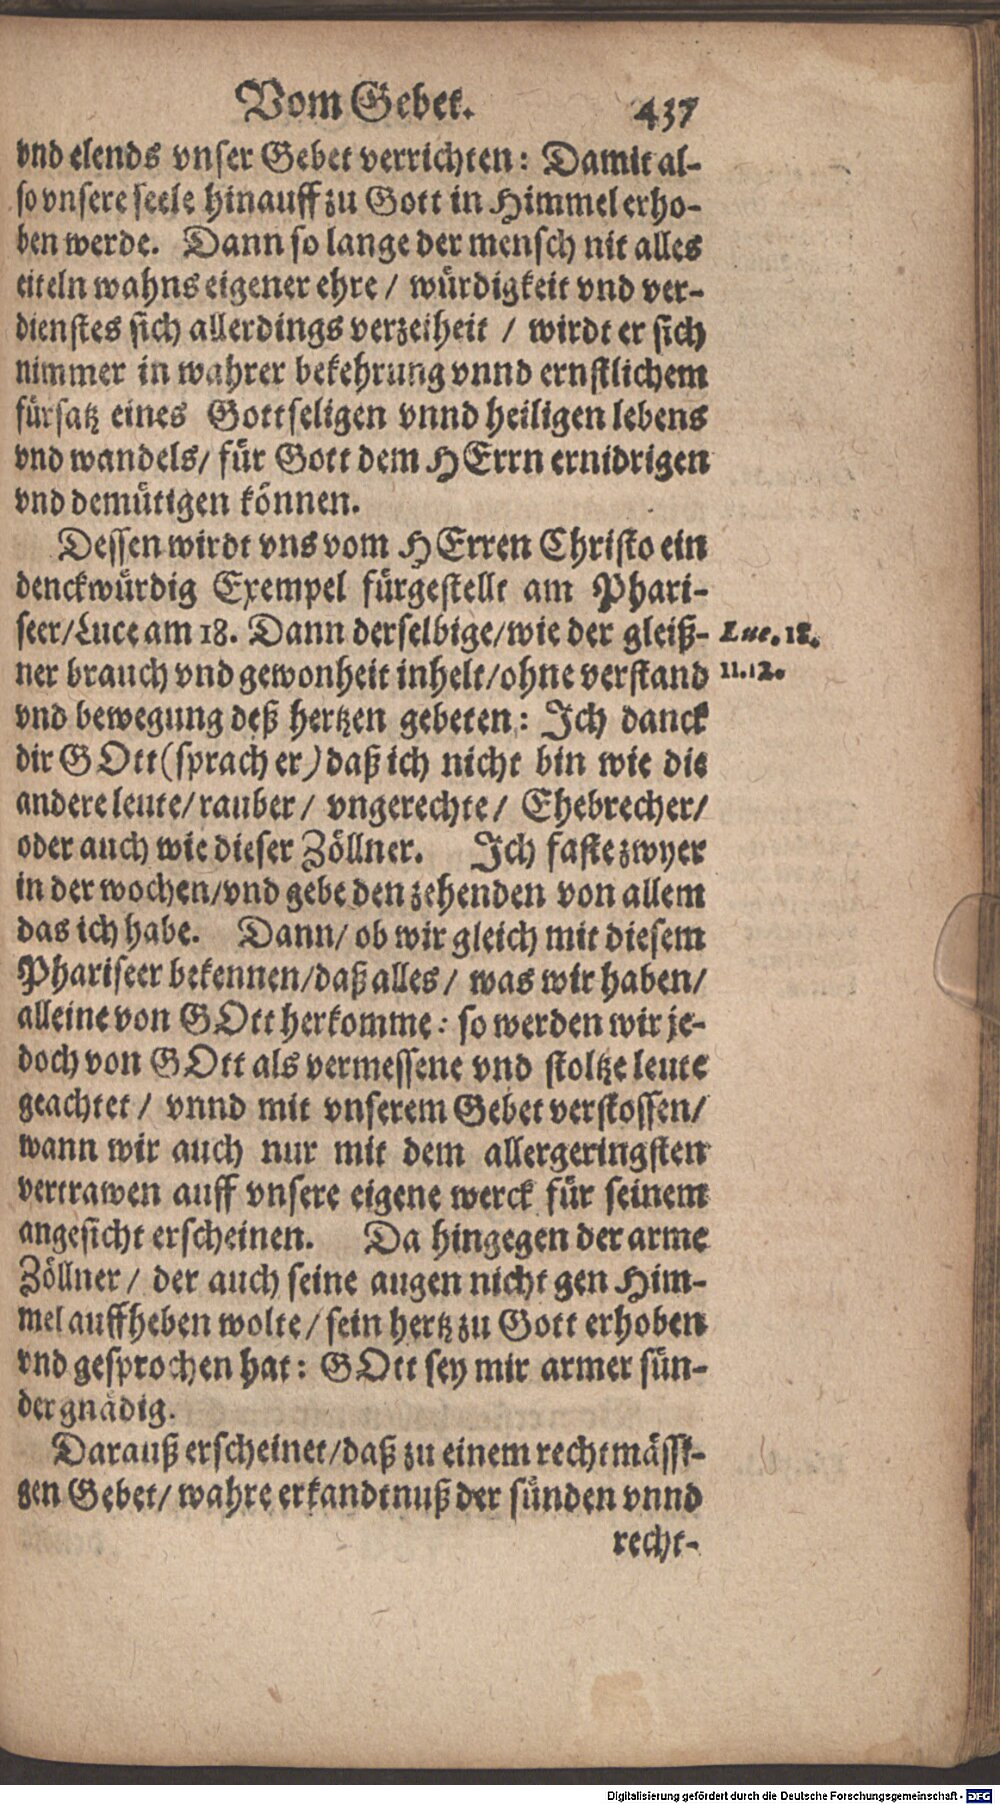 Vom Gebet. 437
vnd elends vnser Gebet verrichten: Damit al-
so vnsere seele hinauff zu Gott in Himmel erho-
ben werde. Dann so lange der mensch nit alles
eiteln wahns eigener ehre / würdigkeit vnd ver-
dienstes sich allerdings verzeiheit / wirdt er sich
nimmer in wahrer bekehrung vnnd ernstlichem
fürsatz eines Gottseligen vnnd heiligen lebens
vnd wandels / für Gott dem HErrn ernidrigen
vnd demütigen können.
Dessen wirdt vns vom HErren Christo ein
denckwürdig Exempel fürgestellt am Phari-
seer / Luce am 18. Dann derselbige / wie der gleiß- Luc. 18.
ner brauch vnd gewonheit inhelt / ohne verstand 11.12.
vnd bewegung deß hertzen gebeten: Ich danck
dir GOtt (sprach er) daß ich nicht bin wie die
andere leute / rauber / vngerechte / Ehebrecher /
oder auch wie dieser Zöllner. Ich faste zwyer
in der wochen / vnd gebe den zehenden von allem
das ich habe. Dann / ob wir gleich mit diesem
Phariseer bekennen / daß alles / was wir haben /
alleine von GOtt herkomme: so werden wir je-
doch von GOtt als vermessene vnd stoltze leute
geachtet / vnnd mit vnserem Gebet verstossen /
wann wir auch nur mit dem allergeringsten
vertrawen auff vnsere eigene werck für seinem
angesicht erscheinen. Da hingegen der arme
Zöllner / der auch seine augen nicht gen Him-
mel auffheben wolte / sein hertz zu Gott erhoben
vnd gesprochen hat: GOtt sey mir armer sün-
der gnädig.
Darauß erscheinet / daß zu einem rechtmässi-
gen Gebet / wahre erkandtnuß der sünden vnnd
recht-
Digitalisierung gefördert durch die Deutsche Forschungsgemeinschaft - DFG